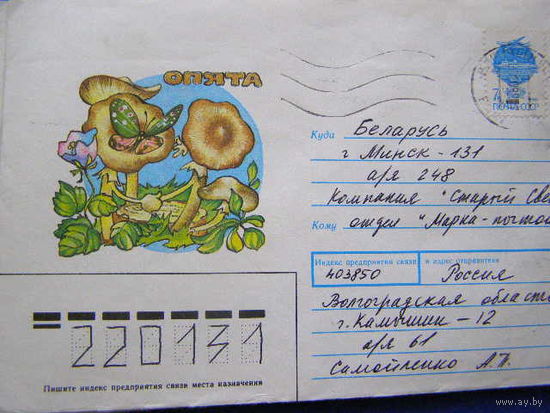 ОПЯТА
ПОЧТА СССР
Куда Беларусь
г Минск-131
а/я 248
Компания "Старый Све
Кому отдел "Марка-почтой
Индекс предприятия связи и адрес отправителя
403850 Россия
Волгоградская област
г. Камышин-12
а/я 61
Самойленко А.П.
220131
Пишите индекс предприятия связи места назначения
www.ay.by